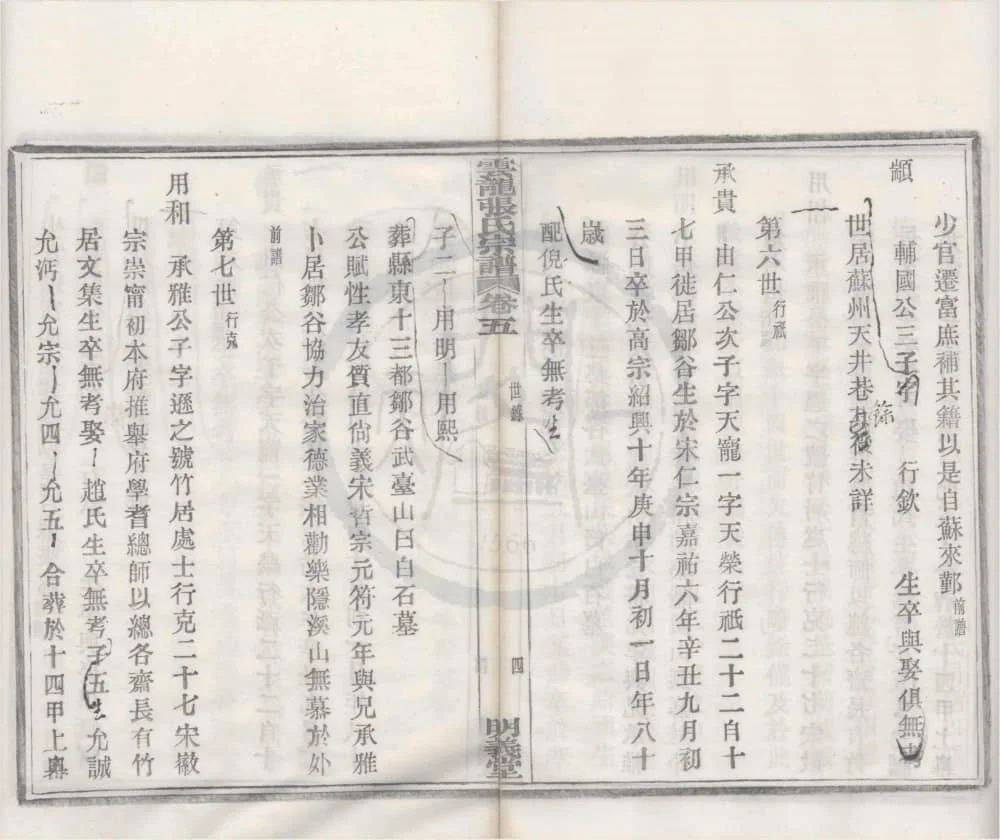 少官遷富庶補其籍以是自蘇來鄞前譜
顓 輔國公三子字 行欽 生卒與娶俱無
世居蘇州天井巷 後未詳
第六世行祇
承貴 由仁公次子字天寵一字天榮行祇二十二自十
七甲徙居鄒谷生於宋仁宗嘉祐六年辛丑九月初
三日卒於高宗紹興十年庚申十月初一日年八十
歲
配倪氏生卒無考生
雲龍張氏宗譜 卷五 世錄 四 明義堂
子二 用明 用熙
葬縣東十三都鄒谷武臺山曰白石墓
公賦性孝友質直尙義宋哲宗元符元年與兄承雅
卜居鄒谷協力治家德業相勸樂隱溪山無慕於外
前譜
第七世行克
用和 承雅公子字遜之號竹居處士行克二十七宋徽
宗崇甯初本府推舉府學耆總師以總各齋長有竹
居文集生卒無考娶 趙氏生卒無考子五生允誠
允沔 允宗 允四 允五 合葬於十四甲上奧